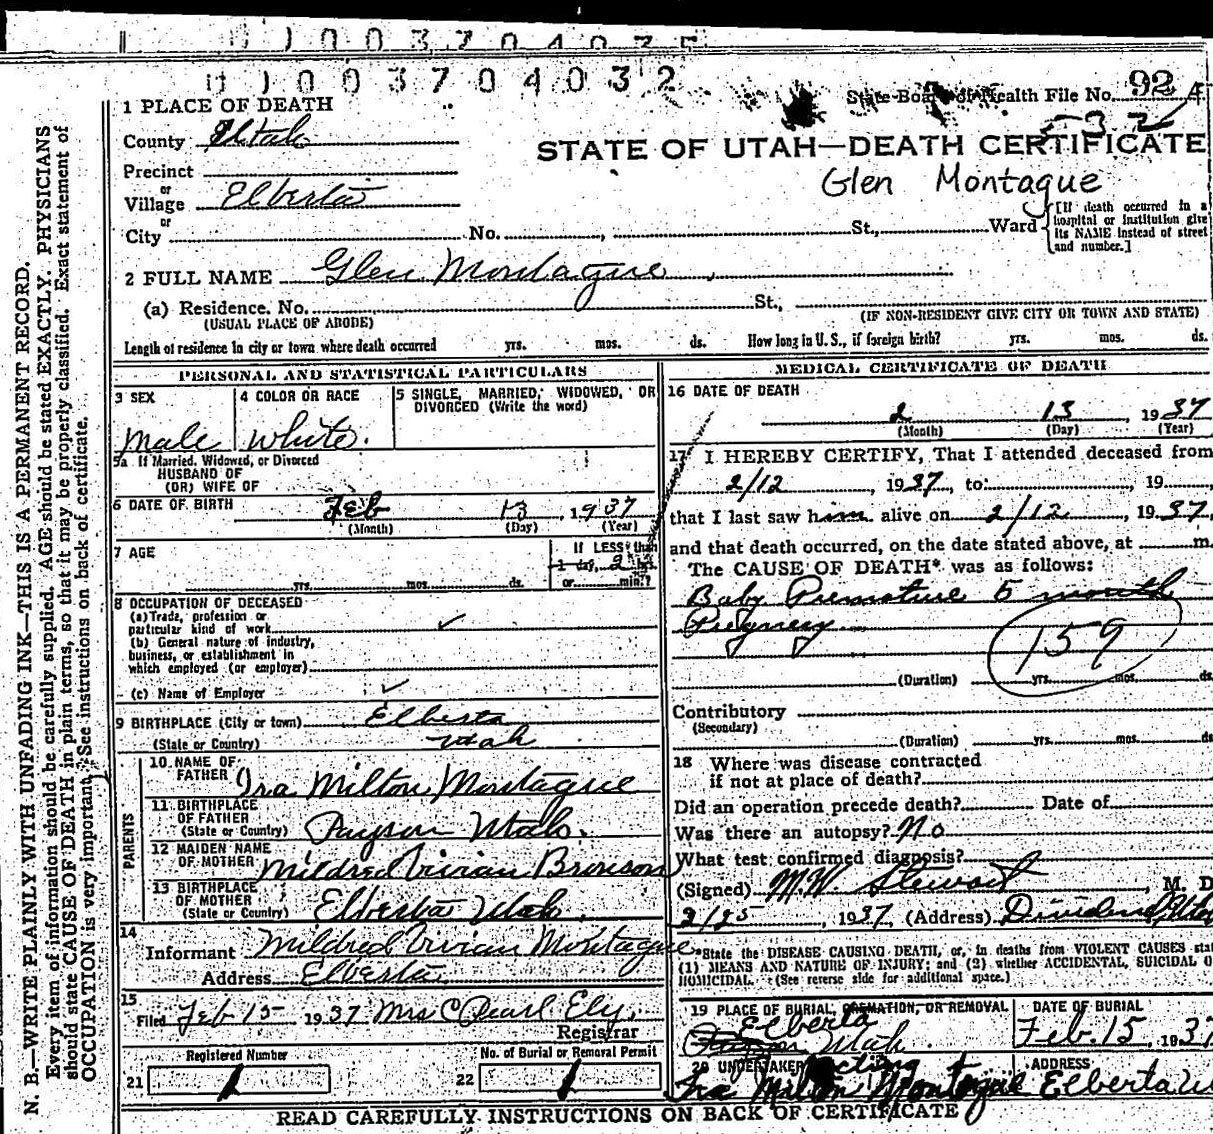 1 0 0 3 7 0 4 0
1 0 0 3 7 0 4 0 3 2
State Board of Health File No. 92 A
1 PLACE OF DEATH
County Utah
STATE OF UTAH—DEATH CERTIFICATE
Precinct
Glen Montague
or
Village Elberta
or
City No. , St., Ward
[If death occurred in a
hospital or institution give
its NAME instead of street
and number.]
2 FULL NAME Glen Montague
(a) Residence. No. St.,
(USUAL PLACE OF ABODE) (IF NON-RESIDENT GIVE CITY OR TOWN AND STATE)
Length of residence in city or town where death occurred yrs. mos. ds. How long in U. S., if foreign birth? yrs. mos. ds.
PERSONAL AND STATISTICAL PARTICULARS
3 SEX
Male
4 COLOR OR RACE
White.
5 SINGLE, MARRIED, WIDOWED, OR
DIVORCED (Write the word)
5a If Married, Widowed, or Divorced
HUSBAND OF
(OR) WIFE OF
6 DATE OF BIRTH Feb 13, 1937
(Month) (Day) (Year)
7 AGE
yrs. mos. ds.
If LESS than
1 day, 2 hrs.
or min.?
8 OCCUPATION OF DECEASED
(a) Trade, profession or
particular kind of work ✓
(b) General nature of industry,
business, or establishment in
which employed (or employer)
(c) Name of Employer ✓
9 BIRTHPLACE (City or town) Elberta
(State or Country) Utah
PARENTS
10 NAME OF
FATHER Ira Milton Montague
11 BIRTHPLACE
OF FATHER
(State or Country) Payson Utah.
12 MAIDEN NAME
OF MOTHER Mildred Vivian Bronson
13 BIRTHPLACE
OF MOTHER
(State or Country) Elberta Utah.
14
Informant Mildred Vivian Montague
Address Elberta
15
Filed Feb 15- 1937 Mrs C Pearl Ely.
Registrar
Registered Number No. of Burial or Removal Permit
21 1 22 1
MEDICAL CERTIFICATE OF DEATH
16 DATE OF DEATH
2 13, 1937
(Month) (Day) (Year)
17 I HEREBY CERTIFY, That I attended deceased from
2/12, 1937, to , 19
that I last saw him alive on 2/12, 1937,
and that death occurred, on the date stated above, at m.
The CAUSE OF DEATH* was as follows:
Baby Premature 5 month
Pregnecy
159
(Duration) yrs. mos. ds
Contributory
(Secondary)
(Duration) yrs. mos. ds
18 Where was disease contracted
if not at place of death?
Did an operation precede death? Date of
Was there an autopsy? No
What test confirmed diagnosis?
(Signed) M.W. Stewart, M. D
1937 (Address) Dividend, Utah
*State the DISEASE CAUSING DEATH, or, in deaths from VIOLENT CAUSES stat
(1) MEANS AND NATURE OF INJURY; and (2) whether ACCIDENTAL, SUICIDAL O
HOMICIDAL. (See reverse side for additional space.)
19 PLACE OF BURIAL, CREMATION, OR REMOVAL
Elberta
Payson Utah.
DATE OF BURIAL
Feb. 15, 1937
20 UNDERTAKER acting
Ira Milton Montague
ADDRESS
Elberta U
READ CAREFULLY INSTRUCTIONS ON BACK OF CERTIFICATE
N. B.—WRITE PLAINLY WITH UNFADING INK—THIS IS A PERMANENT RECORD.
Every item of information should be carefully supplied. AGE should be stated EXACTLY. PHYSICIANS
should state CAUSE OF DEATH in plain terms, so that it may be properly classified. Exact statement of
OCCUPATION is very important. See instructions on back of certificate.